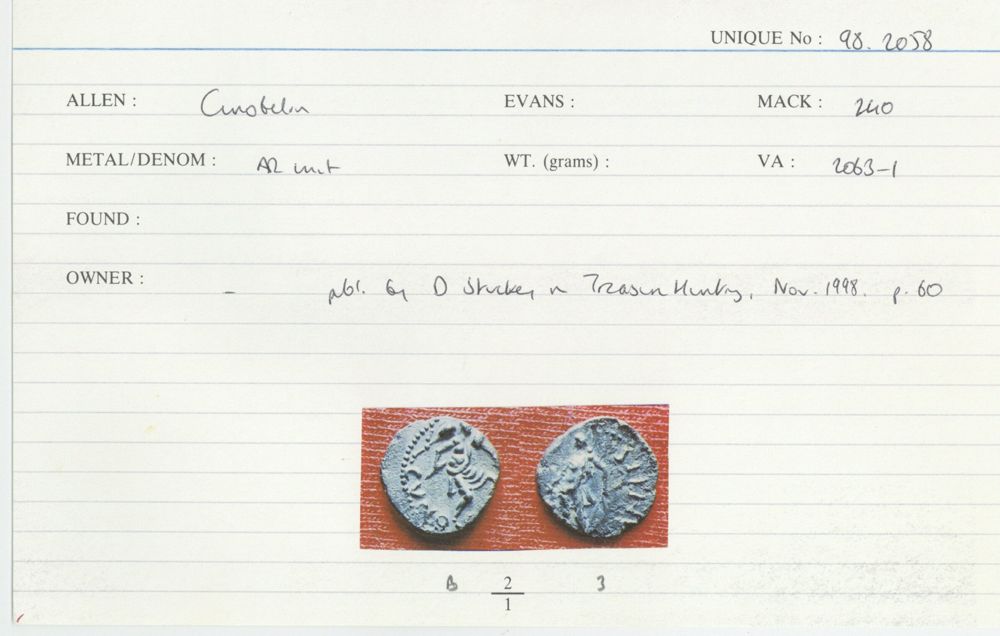 UNIQUE No : 98.2058
ALLEN : Cunobelin EVANS : MACK : 240
METAL/DENOM : AR unit WT. (grams) : VA : 2063-1
FOUND :
OWNER : - publ. by D Stuckey in Treasure Hunting, Nov. 1998. p. 60
B 2 3
1